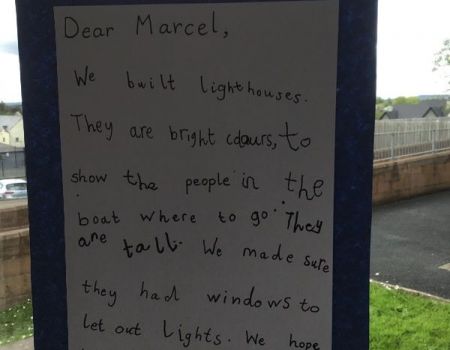 Dear Marcel,
We built lighthouses.
They are bright colours, to
show the people in the
boat where to go. They
are tall. We made sure
they had windows to
let out lights. We hope